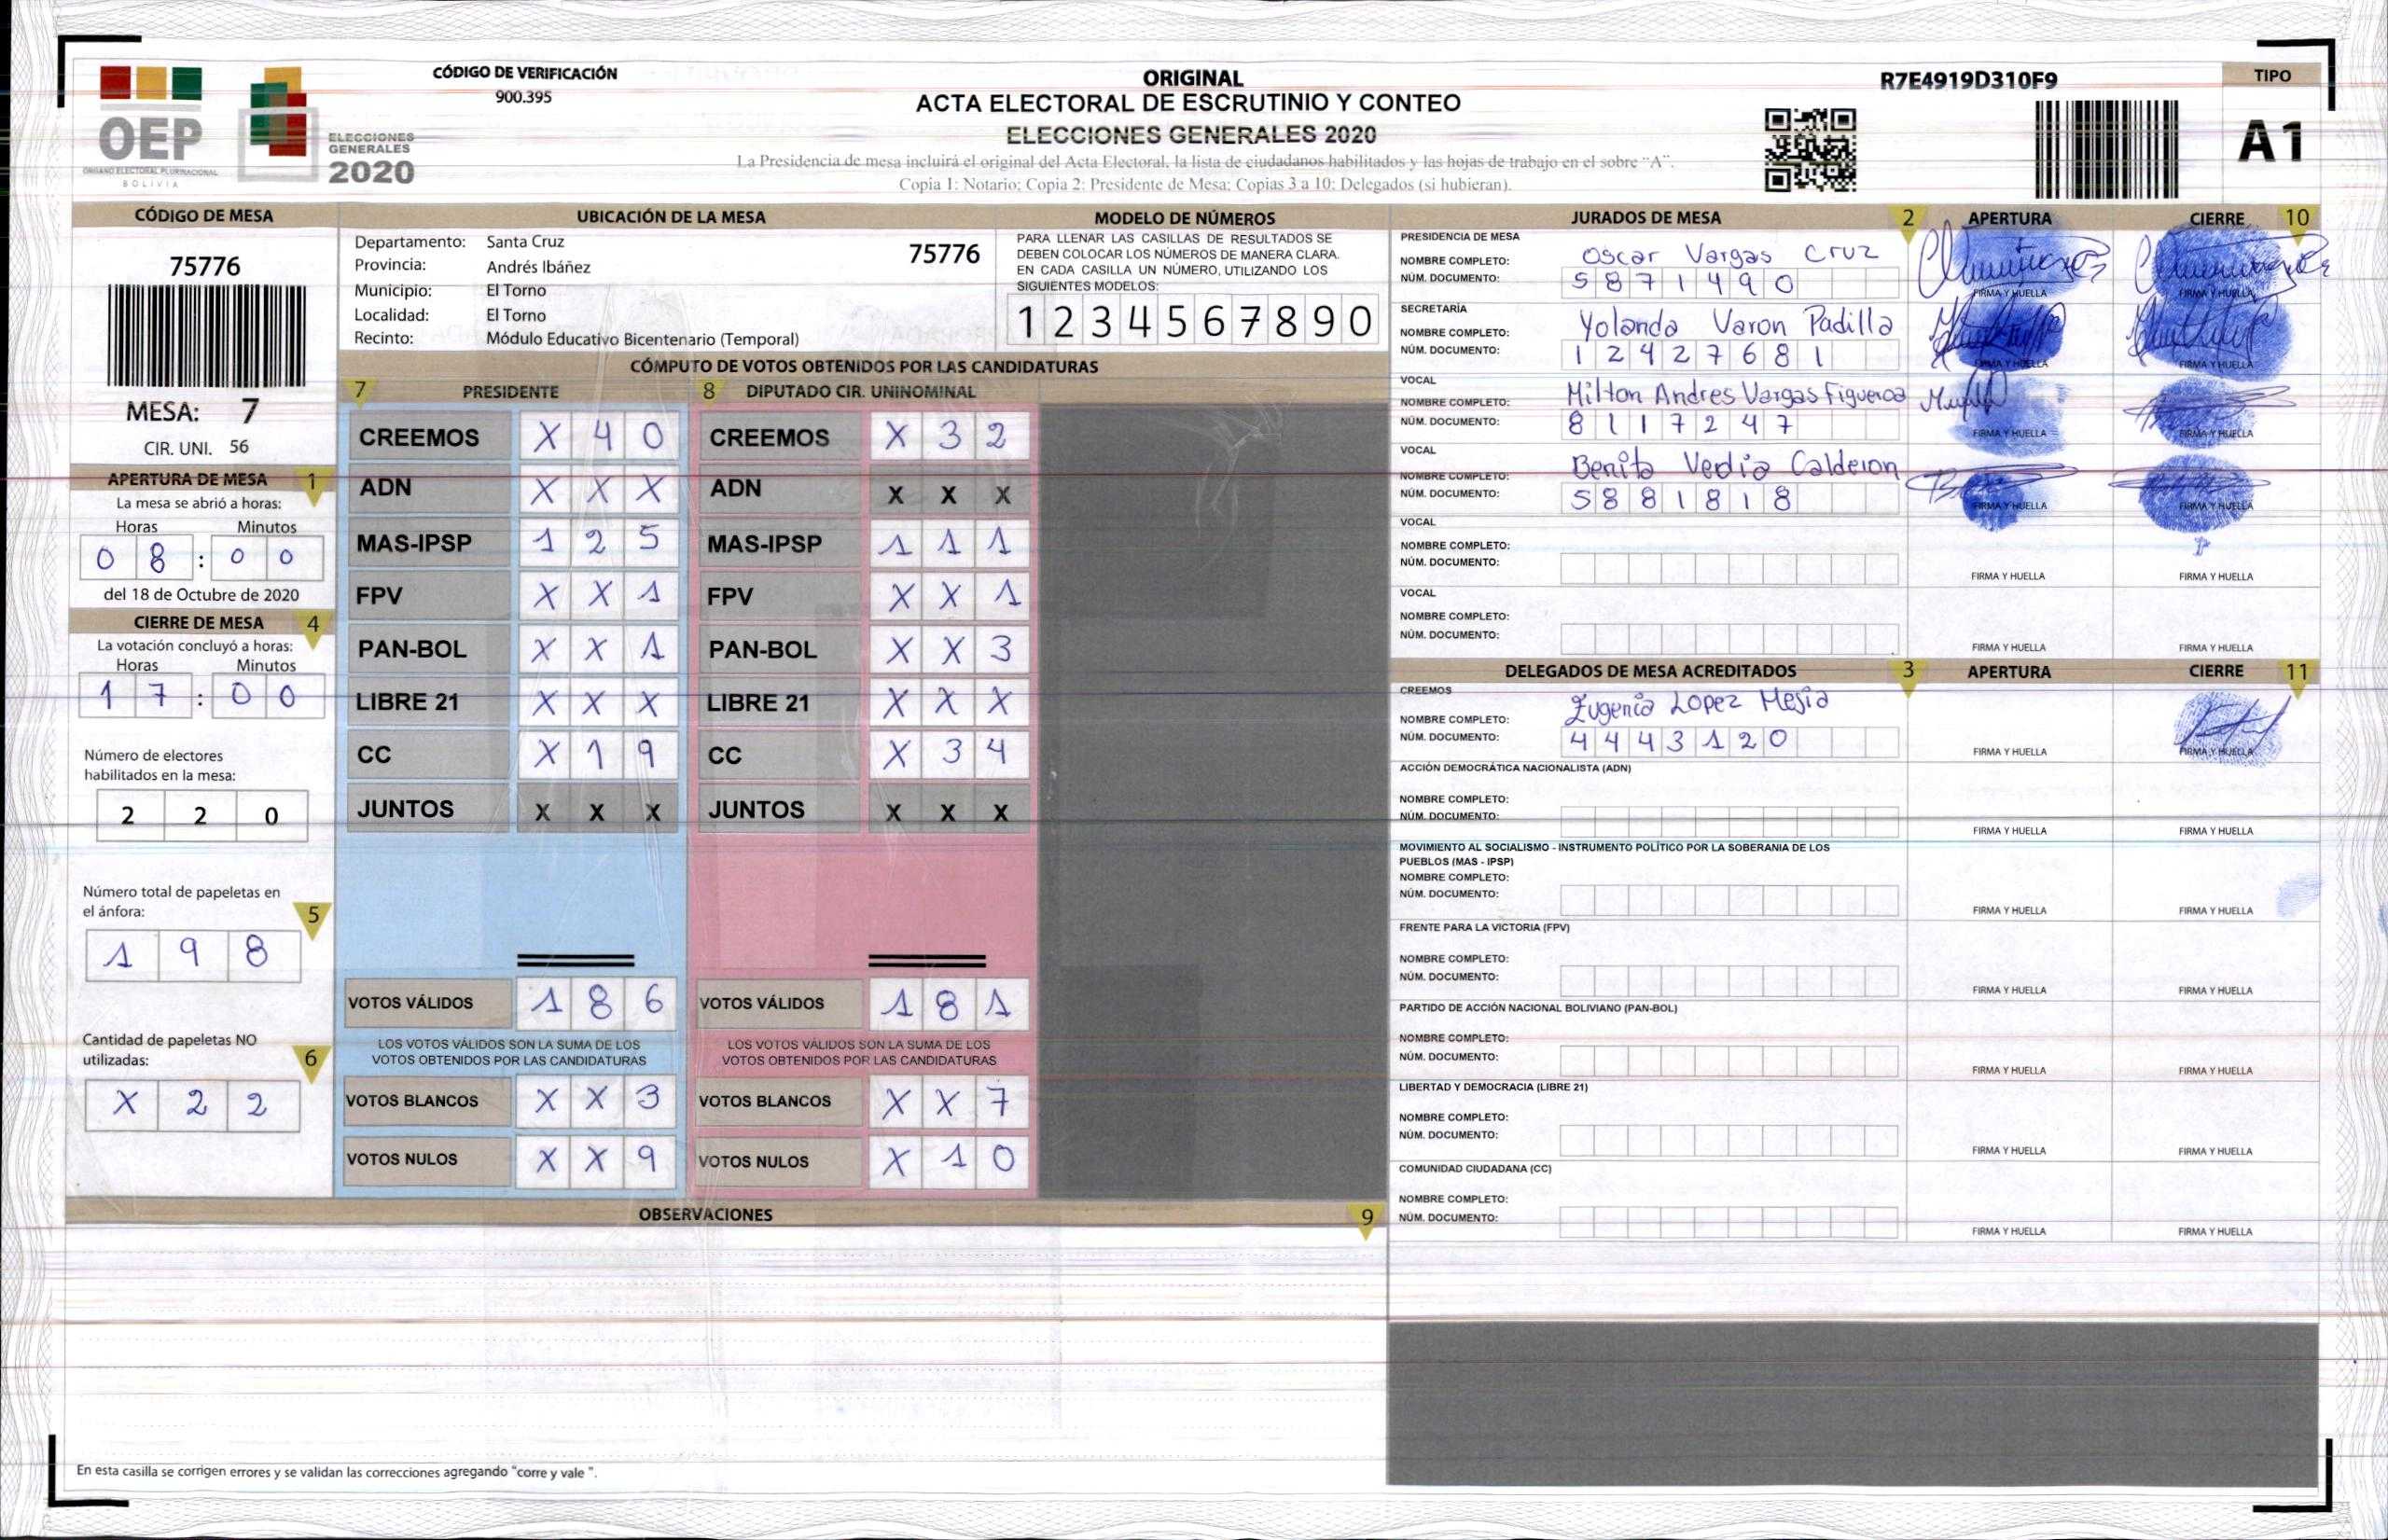 CÓDIGO DE VERIFICACIÓN
900.395
ORIGINAL
ACTA ELECTORAL DE ESCRUTINIO Y CONTEO
ELECCIONES GENERALES 2020
La Presidencia de mesa incluirá el original del Acta Electoral, la lista de ciudadanos habilitados y las hojas de trabajo en el sobre "A".
Copia 1: Notario; Copia 2: Presidente de Mesa; Copias 3 a 10: Delegados (si hubieran).
R7E4919D310F9
TIPO
A1
OEP
ÓRGANO ELECTORAL PLURINACIONAL
BOLIVIA
ELECCIONES
GENERALES
2020
CÓDIGO DE MESA
75776
MESA: 7
CIR. UNI. 56
APERTURA DE MESA 1
La mesa se abrió a horas:
Horas Minutos
0 8 : 0 0
del 18 de Octubre de 2020
CIERRE DE MESA 4
La votación concluyó a horas:
Horas Minutos
1 7 : 0 0
Número de electores
habilitados en la mesa:
2 2 0
Número total de papeletas en
el ánfora: 5
1 9 8
Cantidad de papeletas NO
utilizadas: 6
X 2 2
UBICACIÓN DE LA MESA
Departamento: Santa Cruz 75776
Provincia: Andrés Ibáñez
Municipio: El Torno
Localidad: El Torno
Recinto: Módulo Educativo Bicentenario (Temporal)
MODELO DE NÚMEROS
PARA LLENAR LAS CASILLAS DE RESULTADOS SE
DEBEN COLOCAR LOS NÚMEROS DE MANERA CLARA.
EN CADA CASILLA UN NÚMERO, UTILIZANDO LOS
SIGUIENTES MODELOS:
1 2 3 4 5 6 7 8 9 0
CÓMPUTO DE VOTOS OBTENIDOS POR LAS CANDIDATURAS
7 PRESIDENTE 8 DIPUTADO CIR. UNINOMINAL
CREEMOS X 4 0 CREEMOS X 3 2
ADN X X X ADN X X X
MAS-IPSP 1 2 5 MAS-IPSP 1 1 1
FPV X X 1 FPV X X 1
PAN-BOL X X 1 PAN-BOL X X 3
LIBRE 21 X X X LIBRE 21 X X X
CC X 1 9 CC X 3 4
JUNTOS X X X JUNTOS X X X
VOTOS VÁLIDOS 1 8 6 VOTOS VÁLIDOS 1 8 1
LOS VOTOS VÁLIDOS SON LA SUMA DE LOS LOS VOTOS VÁLIDOS SON LA SUMA DE LOS
VOTOS OBTENIDOS POR LAS CANDIDATURAS VOTOS OBTENIDOS POR LAS CANDIDATURAS
VOTOS BLANCOS X X 3 VOTOS BLANCOS X X 7
VOTOS NULOS X X 9 VOTOS NULOS X 1 0
OBSERVACIONES 9
En esta casilla se corrigen errores y se validan las correcciones agregando "corre y vale ".
JURADOS DE MESA 2 APERTURA CIERRE 10
PRESIDENCIA DE MESA
NOMBRE COMPLETO: Oscar Vargas Cruz
NÚM. DOCUMENTO: 5 8 7 1 4 9 0 FIRMA Y HUELLA FIRMA Y HUELLA
SECRETARÍA
NOMBRE COMPLETO: Yolanda Varon Padilla
NÚM. DOCUMENTO: 1 2 4 2 7 6 8 1 FIRMA Y HUELLA FIRMA Y HUELLA
VOCAL
NOMBRE COMPLETO: Milton Andres Vargas Figueroa
NÚM. DOCUMENTO: 8 1 1 7 2 4 7 FIRMA Y HUELLA FIRMA Y HUELLA
VOCAL
NOMBRE COMPLETO: Benita Verdia Calderon
NÚM. DOCUMENTO: 5 8 8 1 8 1 8 FIRMA Y HUELLA FIRMA Y HUELLA
VOCAL
NOMBRE COMPLETO:
NÚM. DOCUMENTO: FIRMA Y HUELLA FIRMA Y HUELLA
VOCAL
NOMBRE COMPLETO:
NÚM. DOCUMENTO: FIRMA Y HUELLA FIRMA Y HUELLA
DELEGADOS DE MESA ACREDITADOS 3 APERTURA CIERRE 11
CREEMOS
NOMBRE COMPLETO: Eugenia Lopez Mesia
NÚM. DOCUMENTO: 4 4 4 3 1 2 0 FIRMA Y HUELLA FIRMA Y HUELLA
ACCIÓN DEMOCRÁTICA NACIONALISTA (ADN)
NOMBRE COMPLETO:
NÚM. DOCUMENTO: FIRMA Y HUELLA FIRMA Y HUELLA
MOVIMIENTO AL SOCIALISMO - INSTRUMENTO POLÍTICO POR LA SOBERANIA DE LOS
PUEBLOS (MAS - IPSP)
NOMBRE COMPLETO:
NÚM. DOCUMENTO: FIRMA Y HUELLA FIRMA Y HUELLA
FRENTE PARA LA VICTORIA (FPV)
NOMBRE COMPLETO:
NÚM. DOCUMENTO: FIRMA Y HUELLA FIRMA Y HUELLA
PARTIDO DE ACCIÓN NACIONAL BOLIVIANO (PAN-BOL)
NOMBRE COMPLETO:
NÚM. DOCUMENTO: FIRMA Y HUELLA FIRMA Y HUELLA
LIBERTAD Y DEMOCRACIA (LIBRE 21)
NOMBRE COMPLETO:
NÚM. DOCUMENTO: FIRMA Y HUELLA FIRMA Y HUELLA
COMUNIDAD CIUDADANA (CC)
NOMBRE COMPLETO:
NÚM. DOCUMENTO: FIRMA Y HUELLA FIRMA Y HUELLA